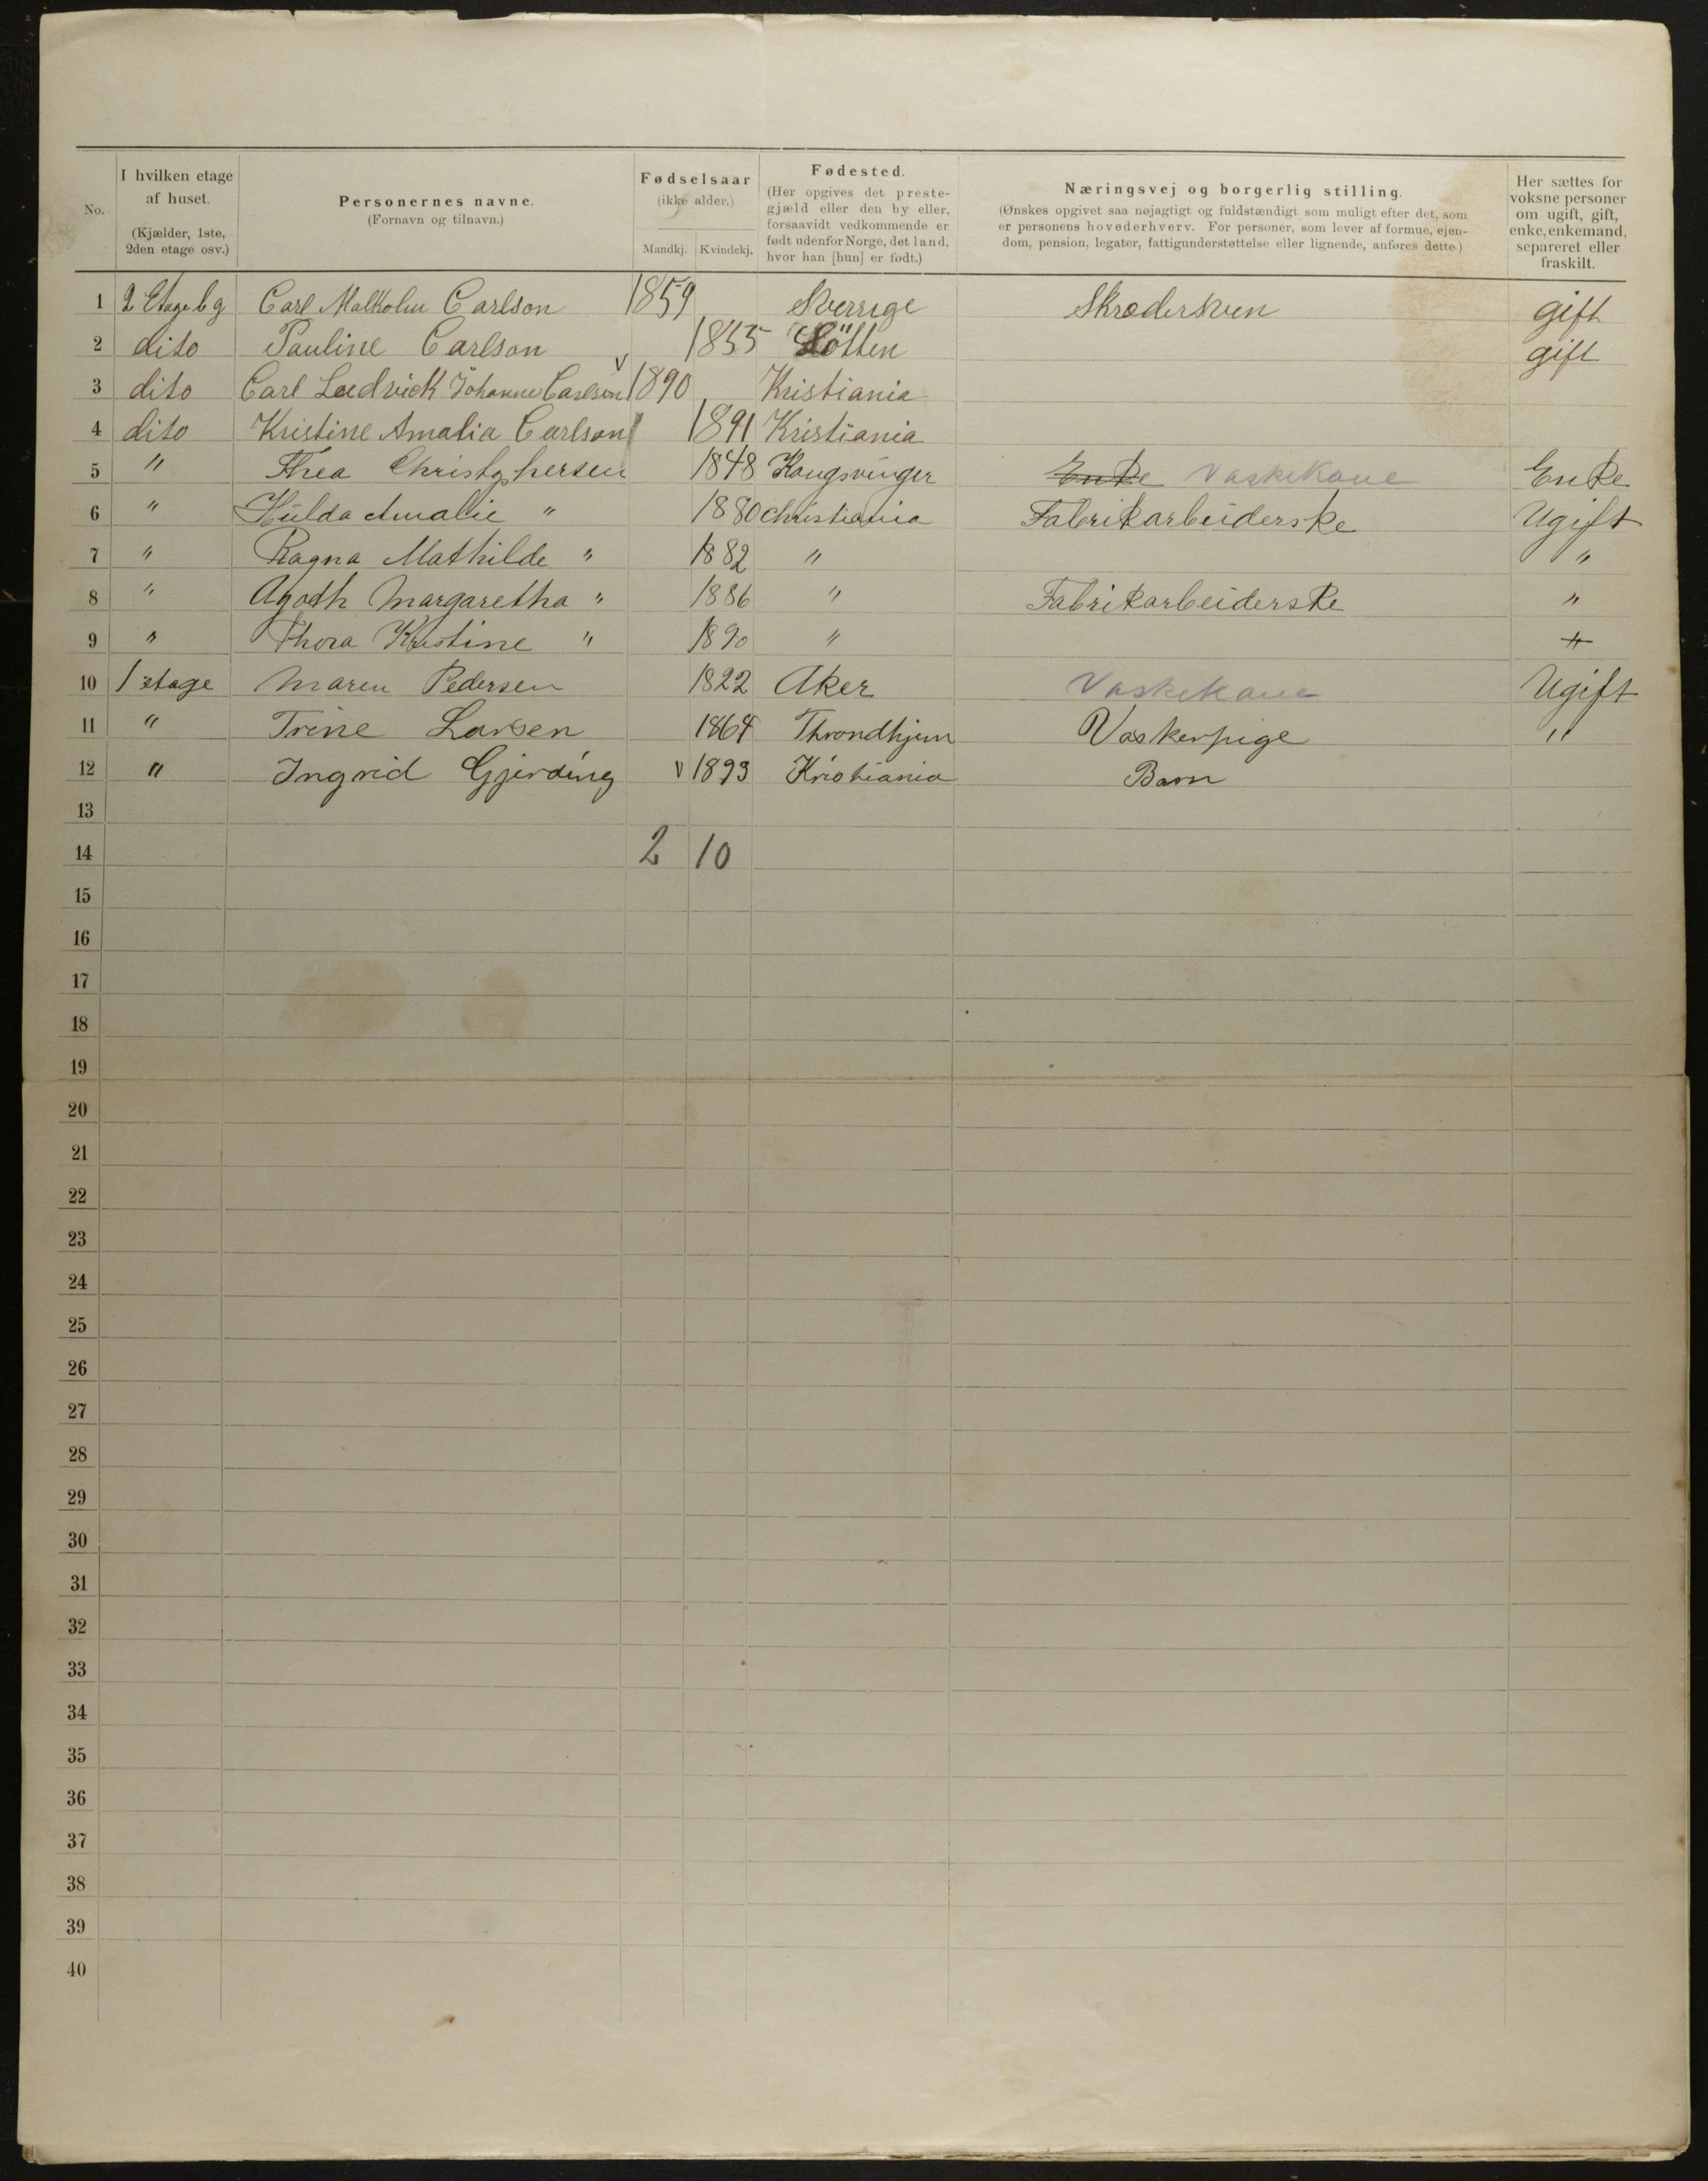 No.
I hvilken etage af huset.
(Kjælder, 1ste, 2den etage osv.)
Personernes navne.
(Fornavn og tilnavn.)
Fødselsaar
(ikke alder.)
Mandkj. Kvindekj.
Fødested.
(Her opgives det preste-
gjæld eller den by eller,
forsaavidt vedkommende er
født udenfor Norge, det land,
hvor han [hun] er født.)
Næringsvej og borgerlig stilling.
(Ønskes opgivet saa nøjagtigt og fuldstændigt som muligt efter det, som
er personens hovederhverv. For personer, som lever af formue, ejen-
dom, pension, legater, fattigunderstøttelse eller lignende, anføres dette)
Her sættes for
voksne personer
om ugift, gift,
enke, enkemand,
separeret eller
fraskilt.
1 2 Etage bg Carl Malkolm Carlson 1859 Sverrige Skrædersven gift
2 dito Pauline Carlson 1855 Lötten gift
3 dito Carl Ludvick Johannes Carlson 1890 Kristiania
4 dito Kristine Amalia Carlson 1891 Kristiania
5 " Thea Christophersen 1848 Kongsvinger Enke Vaskekone Enke
6 " Hulda Amalie " 1880 Christiania Fabrikarbeiderske Ugift
7 " Ragna Mathilde " 1882 " "
8 " Agoth Margaretha " 1886 " Fabrikarbeiderske "
9 " Thora Kristine " 1890 " "
10 1 etage Maren Pedersen 1822 Aker Vaskekone Ugift
11 " Trine Larsen 1864 Throndhjem Vaskerpige "
12 " Ingrid Gjerding v 1893 Kristiania Barn
13
14 2 10
15
16
17
18
19
20
21
22
23
24
25
26
27
28
29
30
31
32
33
34
35
36
37
38
39
40